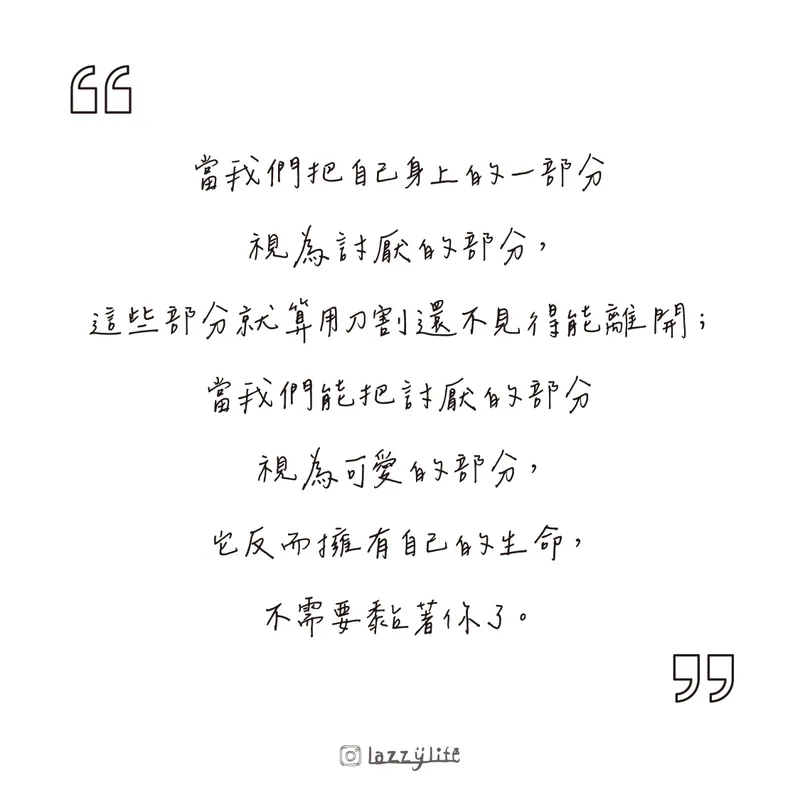 當我們把自己身上的一部分
視為討厭的部分，
這些部分就算用刀割還不見得能離開；
當我們能把討厭的部分
視為可愛的部分，
它反而擁有自己的生命，
不需要黏著你了。
lazzylife